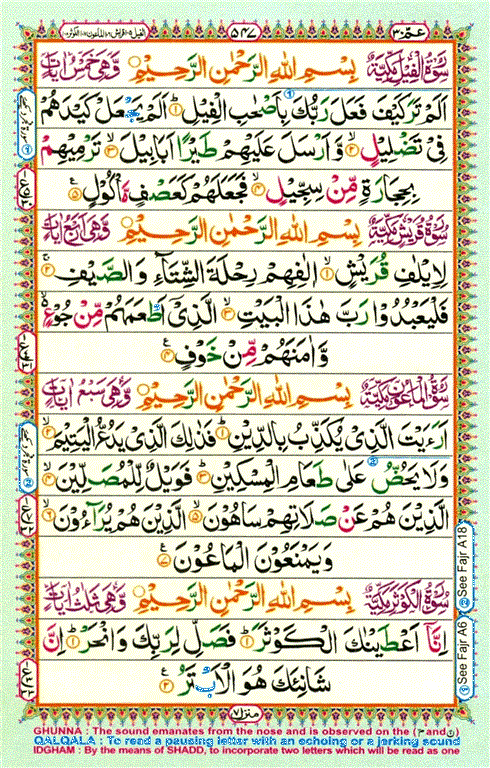 عم ٣٠
٥٤٧
الفيل ١٠٥ قريش ١٠٦ الماعون ١٠٧ الكوثر ١٠٨
سُوْرَةُ الْفِيْلِ مَكِّيَّةٌ بِسْمِ اللهِ الرَّحْمٰنِ الرَّحِيْمِ وَّهِيَ خَمْسُ اٰيَاتٍ
اَلَمْ تَرَ كَيْفَ فَعَلَ رَبُّكَ بِاَصْحٰبِ الْفِيْلِ ۱ اَلَمْ يَجْعَلْ كَيْدَهُمْ
فِيْ تَضْلِيْلٍ ۲ وَّاَرْسَلَ عَلَيْهِمْ طَيْرًا اَبَابِيْلَ ۳ تَرْمِيْهِمْ
بِحِجَارَةٍ مِّنْ سِجِّيْلٍ ۴ فَجَعَلَهُمْ كَعَصْفٍ مَّاْكُوْلٍ ۵
سُوْرَةُ قُرَيْشٍ مَكِّيَّةٌ بِسْمِ اللهِ الرَّحْمٰنِ الرَّحِيْمِ وَّهِيَ اَرْبَعُ اٰيَاتٍ
لِاِيْلٰفِ قُرَيْشٍ ۱ اٖلٰفِهِمْ رِحْلَةَ الشِّتَآءِ وَالصَّيْفِ ۲
فَلْيَعْبُدُوْا رَبَّ هٰذَا الْبَيْتِ ۳ الَّذِيْٓ اَطْعَمَهُمْ مِّنْ جُوْعٍ
وَّاٰمَنَهُمْ مِّنْ خَوْفٍ ۴
سُوْرَةُ الْمَاعُوْنِ مَكِّيَّةٌ بِسْمِ اللهِ الرَّحْمٰنِ الرَّحِيْمِ وَّهِيَ سَبْعُ اٰيَاتٍ
اَرَءَيْتَ الَّذِيْ يُكَذِّبُ بِالدِّيْنِ ۱ فَذٰلِكَ الَّذِيْ يَدُعُّ الْيَتِيْمَ ۲
وَلَا يَحُضُّ عَلٰى طَعَامِ الْمِسْكِيْنِ ۳ فَوَيْلٌ لِّلْمُصَلِّيْنَ ۴
الَّذِيْنَ هُمْ عَنْ صَلَاتِهِمْ سَاهُوْنَ ۵ الَّذِيْنَ هُمْ يُرَآءُوْنَ ۶
وَيَمْنَعُوْنَ الْمَاعُوْنَ ۷
سُوْرَةُ الْكَوْثَرِ مَكِّيَّةٌ بِسْمِ اللهِ الرَّحْمٰنِ الرَّحِيْمِ وَّهِيَ ثَلٰثُ اٰيَاتٍ
اِنَّآ اَعْطَيْنٰكَ الْكَوْثَرَ ۱ فَصَلِّ لِرَبِّكَ وَانْحَرْ ۲ اِنَّ
شَانِئَكَ هُوَ الْاَبْتَرُ ۳
② See Fajr A18
① See Fajr A6
منزل ٧
GHUNNA : The sound emanates from the nose and is observed on the (م and ن)
QALQALA : To read a pausing letter with an echoing or a jerking sound
IDGHAM : By the means of SHADD, to incorporate two letters which will be read as one